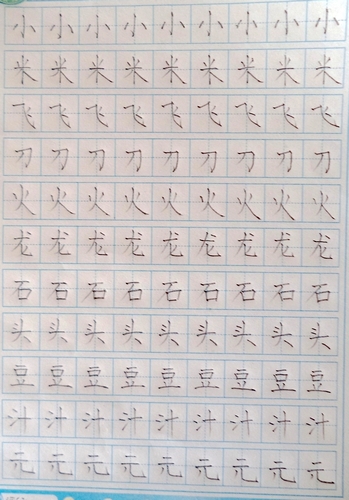 小小小小小小小小小
米米米米米米米米米
飞飞飞飞飞飞飞飞飞
刀刀刀刀刀刀刀刀刀
火火火火火火火火火
龙龙龙龙龙龙龙龙龙
石石石石石石石石石
头头头头头头头头头
豆豆豆豆豆豆豆豆豆
汁汁汁汁汁汁汁汁汁
元元元元元元元元元